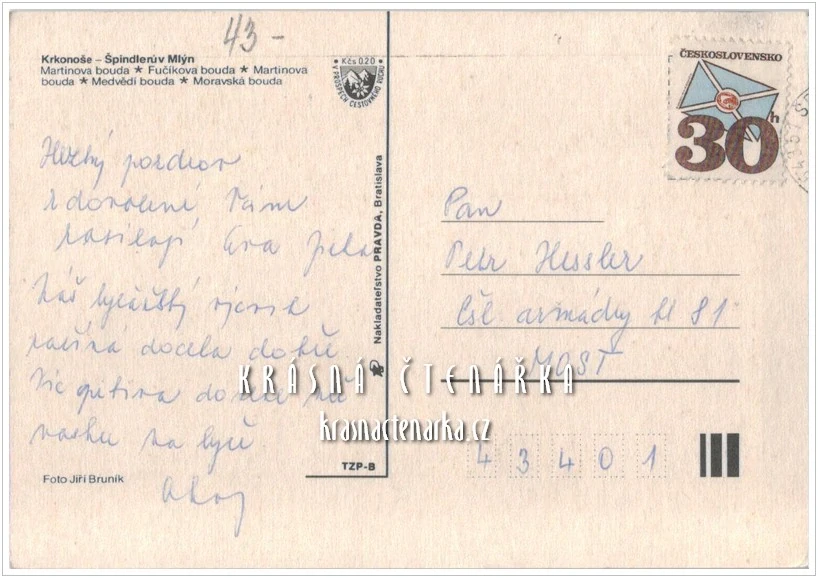 43-
Krkonoše – Špindlerův Mlýn
Martinova bouda ★ Fučíkova bouda ★ Martinova
bouda ★ Medvědí bouda ★ Moravská bouda
Kčs 0,20
V PROSPĚCH CESTOVNÉHO RUCHU
ČESKOSLOVENSKO
30h
Hezký pozdrav
z dovolené Vám
zasílají Eva
Náš lyžařský výcvik
začíná docela dobře.
na lyže.
Ahoj
Foto Jiří Bruník
Nakladateľstvo PRAVDA, Bratislava
TZP-B
Pan
Petr Hessler
Čsl. armády bl 81
MOST
43401
KRÁSNÁ ČTENÁŘKA
krasnactenarka.cz